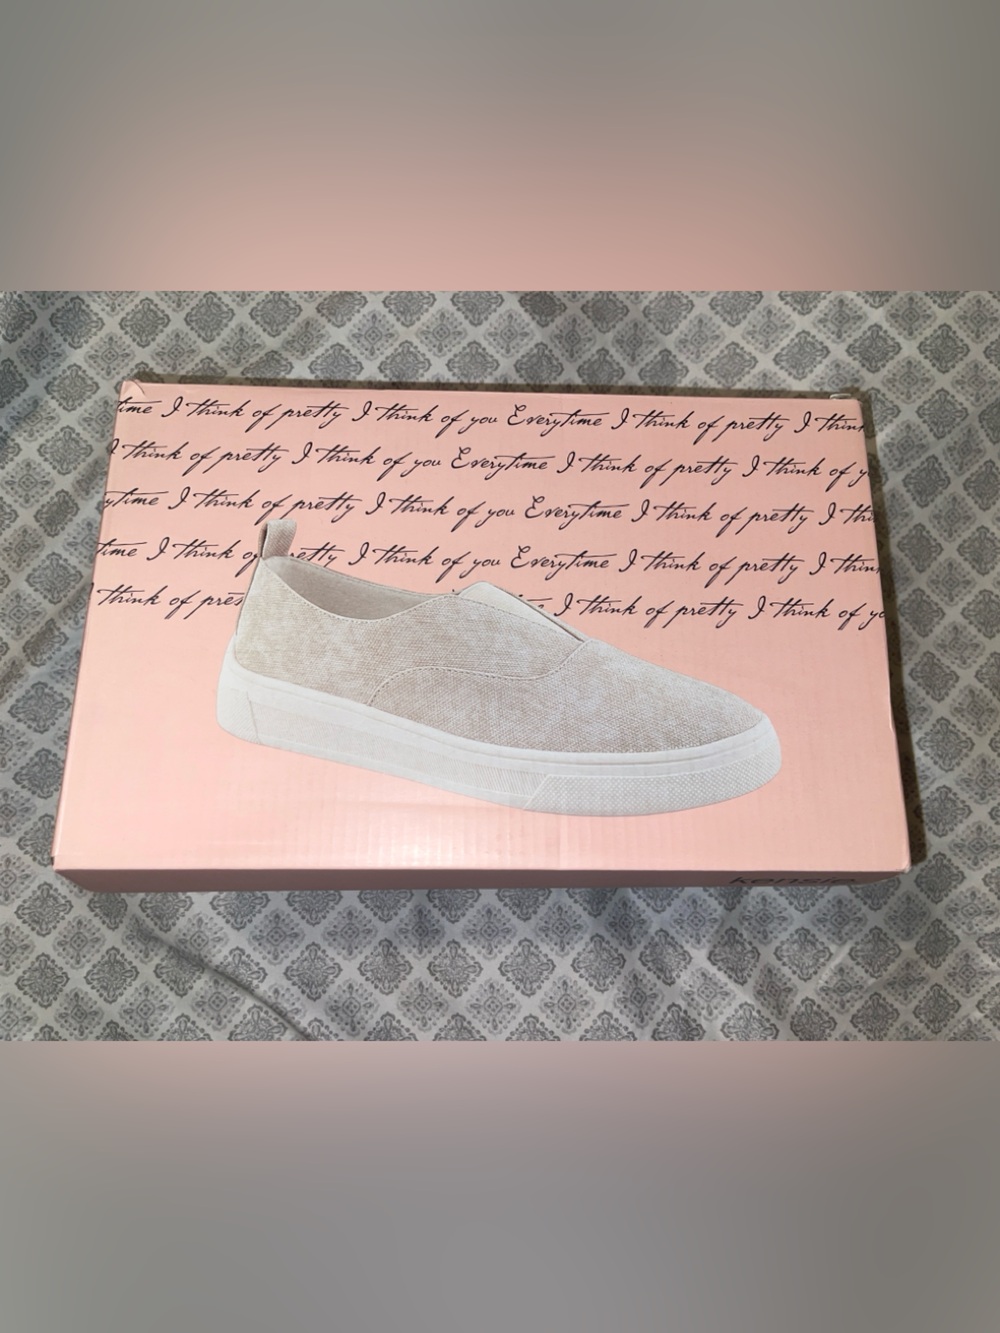 time I think of pretty I think of you Everytime I think of pretty I think
I think of pretty I think of you Everytime I think of pretty I think of y
ytime I think of pretty I think of you Everytime I think of pretty I thi
time I think of pretty I think of you Everytime I think of pretty I think
think of pre I think of pretty I think of yo
kensie